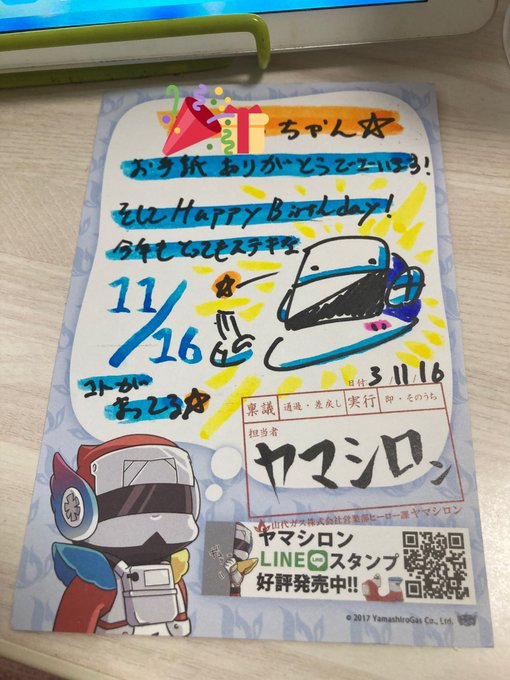 ちゃん☆
お手紙ありがとうございます!
そしてHappy Birthday!
今年もとってもステキな
11/16
コトがまってる☆
日付 3/11/16
稟議 通過・差戻し 実行 即・そのうち
担当者
ヤマシロン
山代ガス株式会社営業部ヒーロー課 ヤマシロン
ヤマシロン
LINEスタンプ
好評発売中!!
© 2017 YamashiroGas Co., Ltd.